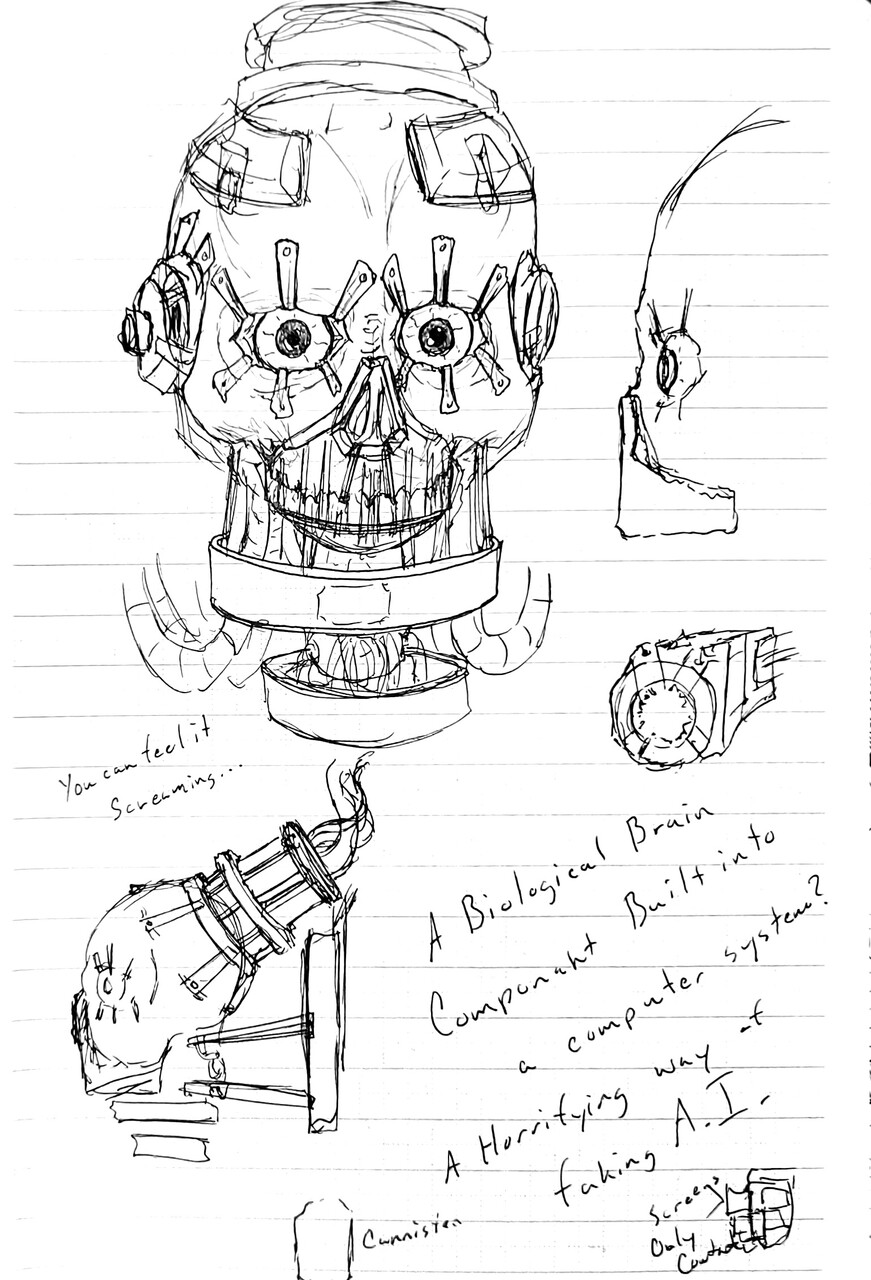 You can feel it
Screaming...
A Biological Brain
Componant Built into
a computer system?
A Horrifying way of
faking A.I.
Cannister
Screens
Only